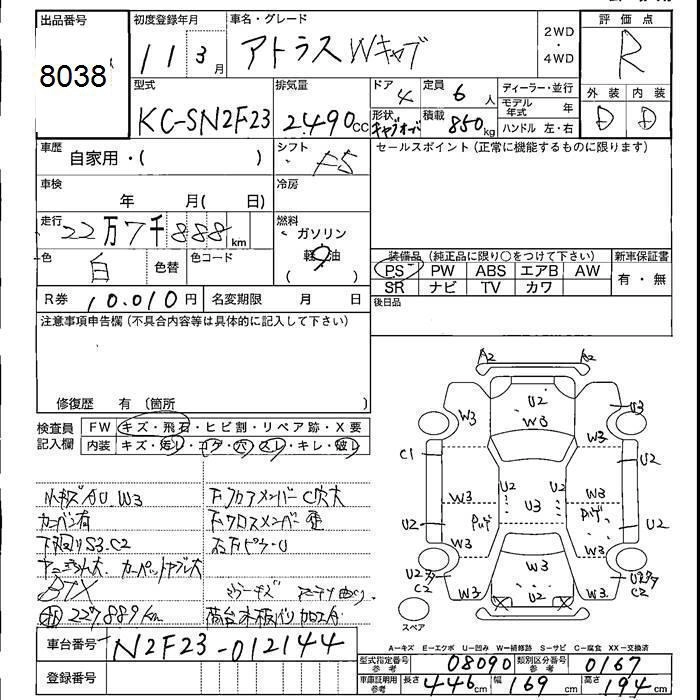 出品番号 8038
初度登録年月 11 3月
車名・グレード アトラスWキャブ
2WD・4WD
評価点 R
型式 KC-SN2F23
排気量 2.490cc
ドア 4
定員 6人
形状 キャブオーバ
積載 850kg
ディーラー・並行
モデル年式 年
ハンドル 左・右
外装 D
内装 D
車歴 自家用・( )
シフト F5
セールスポイント (正常に機能するものに限ります)
車検 年 月( 日)
冷房
走行 22万7千888km
燃料 ガソリン 軽油
色 白 色替 色コード
装備品 (純正品に限り○をつけて下さい)
PS PW ABS エアB AW
SR ナビ TV カワ
新車保証書 有・無
R券 10.010円 名変期限 月 日
後日品
注意事項申告欄 (不具合内容等は具体的に記入して下さい)
修復歴 有 〔箇所 〕
検査員記入欄
FW キズ・飛石・ヒビ割・リペア跡・X要
内装 キズ・汚レ・コゲ・穴・スレ・キレ・破レ
小キズAU.W3
カーバン有
下回りS3.C2
カーペット
下フロアメンバーC穴大
下クロスメンバー
227.889km
荷台木板バリ加工
A2 A2
U2
W3
W3 U3
W3 W3
C1 U2
U2 U2
W3 U3 W3
U2 U2
W3 W3
W3
U2タ C2
U2タ C2
W3
U2
スペア
A-キズ E-エクボ U-凹み W-補修跡 S-サビ C-腐食 XX-交換済
車台番号 N2F23-012144
登録番号
型式指定番号参考 08090
類別区分番号参考 0167
車庫証明用参考 長さ 446cm 幅 169cm 高さ 194cm